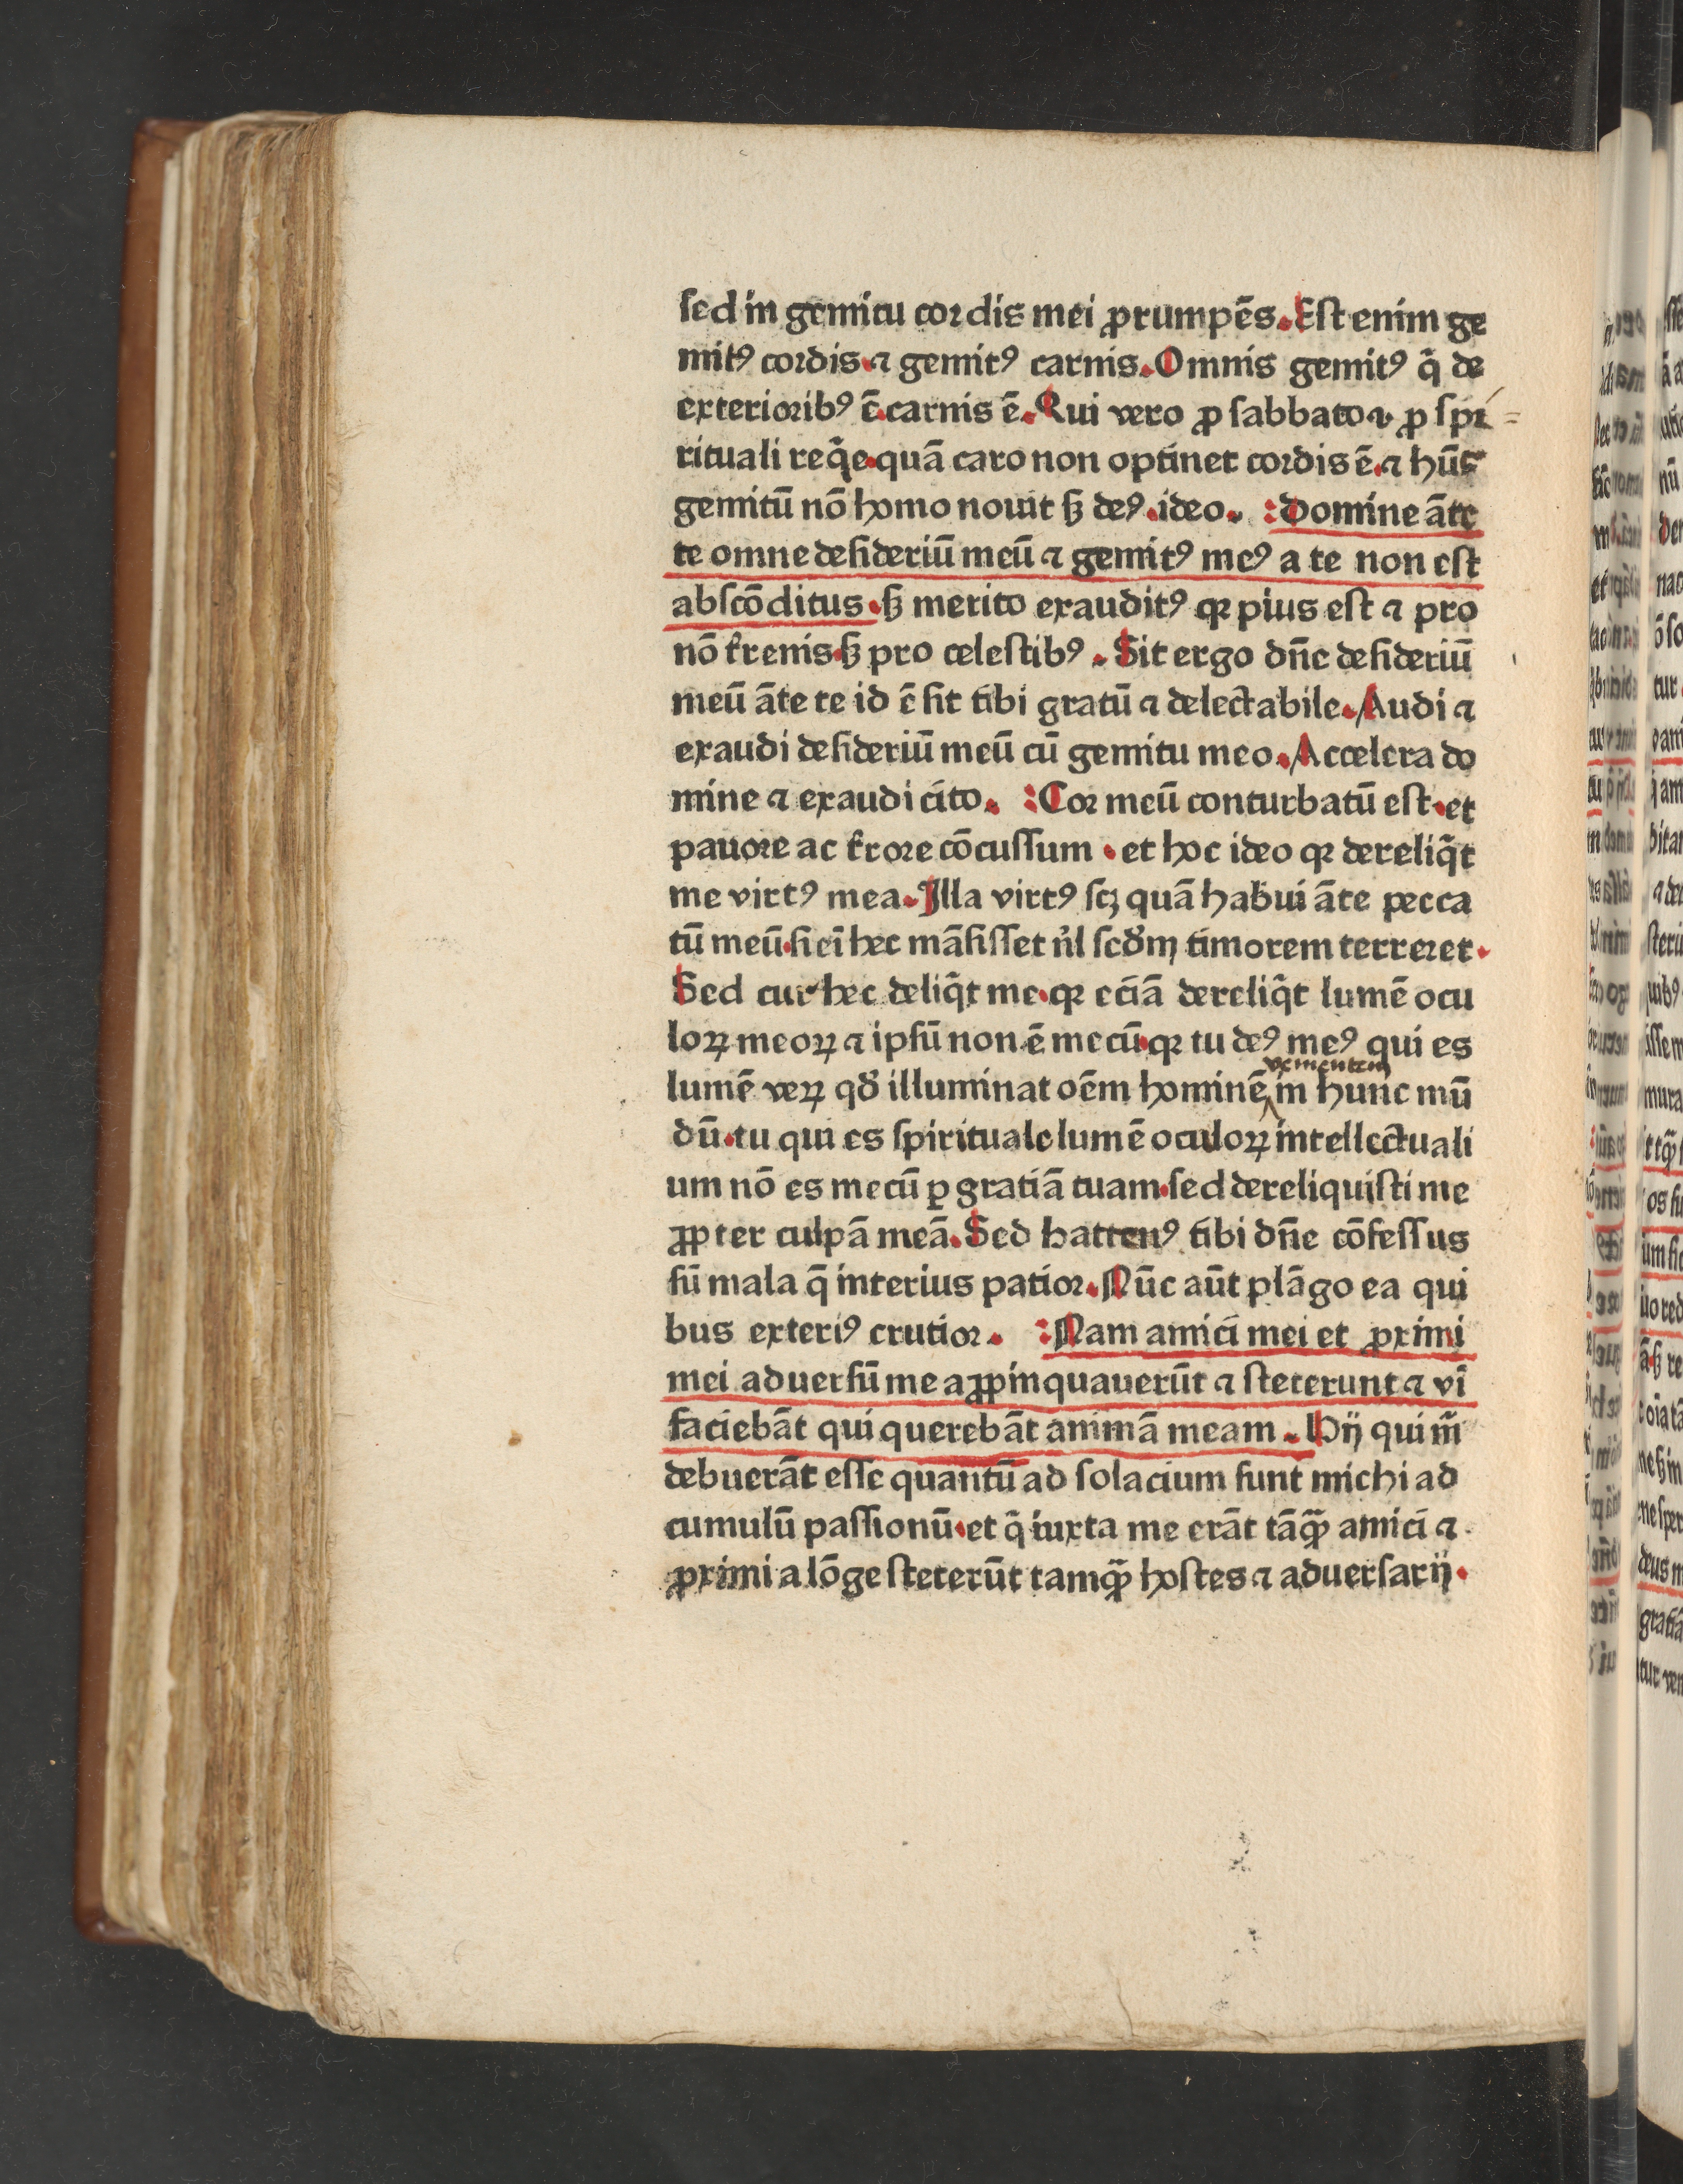 sed in gemitu cordis mei ꝓrumpēs. Est enim ge
mitꝰ cordis ⁊ gemitꝰ carnis. Omnis gemitꝰ q̄ de
exterioribꝰ ē carnis ē. Qui vero ꝓ sabbato ⁊ ꝓ spi=
rituali req̄e quā caro non optinet cordis ē. ⁊ hūc
gemitū nō homo nouit sꝫ deꝰ. ideo. Domine āte
te omne desideriū meū ⁊ gemitꝰ meꝰ a te non est
abscōditus. sꝫ merito exauditꝰ qꝛ pius est ⁊ pro
nō t̄renis sꝫ pro celestibꝰ. Sit ergo dn̄e desideriū
meū āte te id ē sit tibi gratū ⁊ delectabile. Audi ⁊
exaudi desideriū meū cū gemitu meo. Accelera do
mine ⁊ exaudi cito. Cor meū conturbatū est. et
pauore ac t̄rore cōcussum. et hoc ideo qꝛ dereliq̄t
me virtꝰ mea. Illa virtꝰ scꝫ quā habui āte pecca
tū meū. si ei hec māsisset nl̄ scd̄m timorem terreret.
Sed cur hec deliq̄t me. qꝛ eciā dereliq̄t lumē ocu
loꝝ meoꝝ ⁊ ipsū non ē mecū. qꝛ tu deꝰ meꝰ qui es
venientem
lumē veꝝ qd̄ illuminat oēm hominē in hunc mū
dū. tu qui es spirituale lumē oculoꝝ intellectuali
um nō es mecū ꝑ gratiā tuam. sed dereliquisti me
ꝓpter culpā meā. Sed hactenꝰ tibi dn̄e cōfessus
sū mala q̄ interius patior. Nūc aūt plāgo ea qui
bus exteriꝰ crutior. Nam amici mei et ꝓximi
mei aduersū me aꝓpinquauerūt ⁊ steterunt ⁊ vī
faciebāt qui querebāt animā meam. Hij qui m̄
debuerāt esse quantū ad solacium sunt michi ad
cumulū passionū. et q̄ iuxta me erāt tāqꝫ amici ⁊
ꝓximi a lōge steterūt tamqꝫ hostes ⁊ aduersarij.